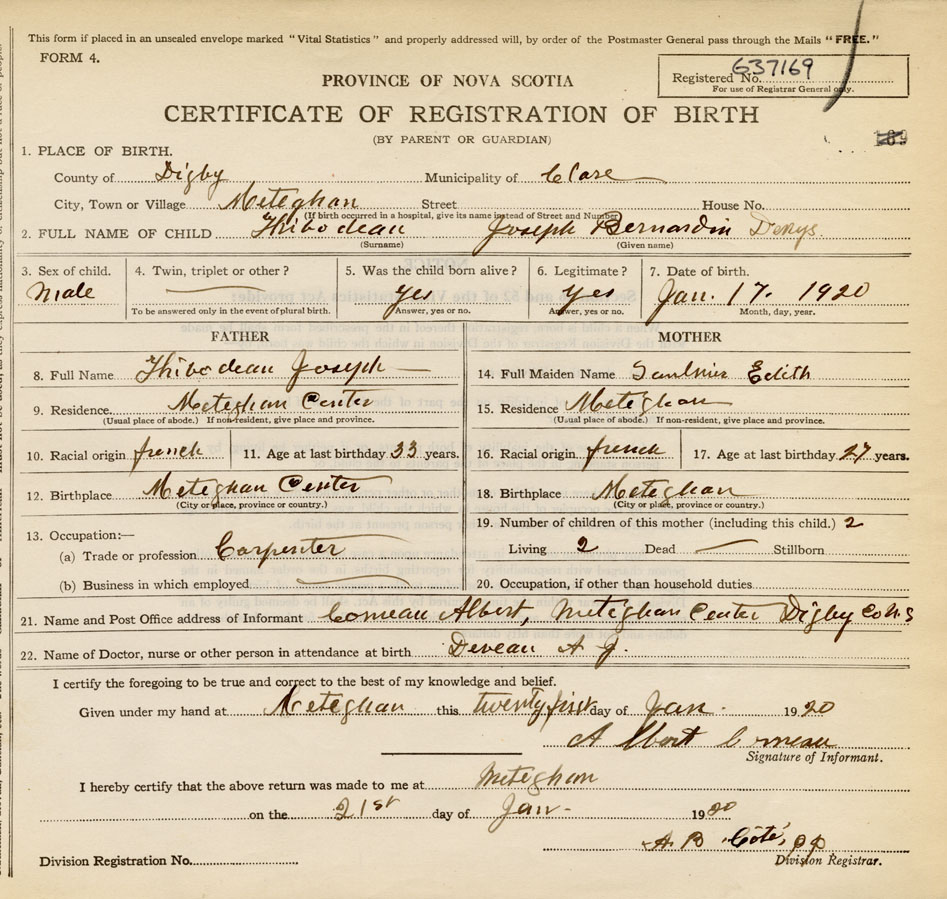 This form if placed in an unsealed envelope marked "Vital Statistics" and properly addressed will, by order of the Postmaster General pass through the Mails "FREE."
FORM 4.
Registered No. 637169
For use of Registrar General only.
PROVINCE OF NOVA SCOTIA
CERTIFICATE OF REGISTRATION OF BIRTH
(BY PARENT OR GUARDIAN)
189
1. PLACE OF BIRTH.
County of Digby Municipality of Clare
City, Town or Village Meteghan Street House No.
(If birth occurred in a hospital, give its name instead of Street and Number)
2. FULL NAME OF CHILD Thibodeau Joseph Bernardin Denys
(Surname) (Given name)
3. Sex of child. 4. Twin, triplet or other? 5. Was the child born alive? 6. Legitimate? 7. Date of birth.
Male Yes Yes Jan. 17. 1920
To be answered only in the event of plural birth. Answer, yes or no. Answer, yes or no. Month, day, year.
FATHER
8. Full Name Thibodeau Joseph
9. Residence. Meteghan Center
(Usual place of abode.) If non-resident, give place and province.
10. Racial origin french 11. Age at last birthday 33 years.
12. Birthplace Meteghan Center
(City or place, province or country.)
13. Occupation:—
(a) Trade or profession Carpenter
(b) Business in which employed
MOTHER
14. Full Maiden Name Saulnier Edith
15. Residence Meteghan
(Usual place of abode.) If non-resident, give place and province.
16. Racial origin french 17. Age at last birthday 27 years.
18. Birthplace Meteghan
(City or place, province or country.)
19. Number of children of this mother (including this child.) 2
Living 2 Dead Stillborn
20. Occupation, if other than household duties
21. Name and Post Office address of Informant Comeau Albert, Meteghan Center Digby Co N.S
22. Name of Doctor, nurse or other person in attendance at birth Deveau A J.
I certify the foregoing to be true and correct to the best of my knowledge and belief.
Given under my hand at Meteghan this twenty first day of Jan. 1920
A Albert Comeau
Signature of Informant.
I hereby certify that the above return was made to me at Meteghan
on the 21st day of Jan- 1920
A. B. Côté, pp
Division Registration No. Division Registrar.